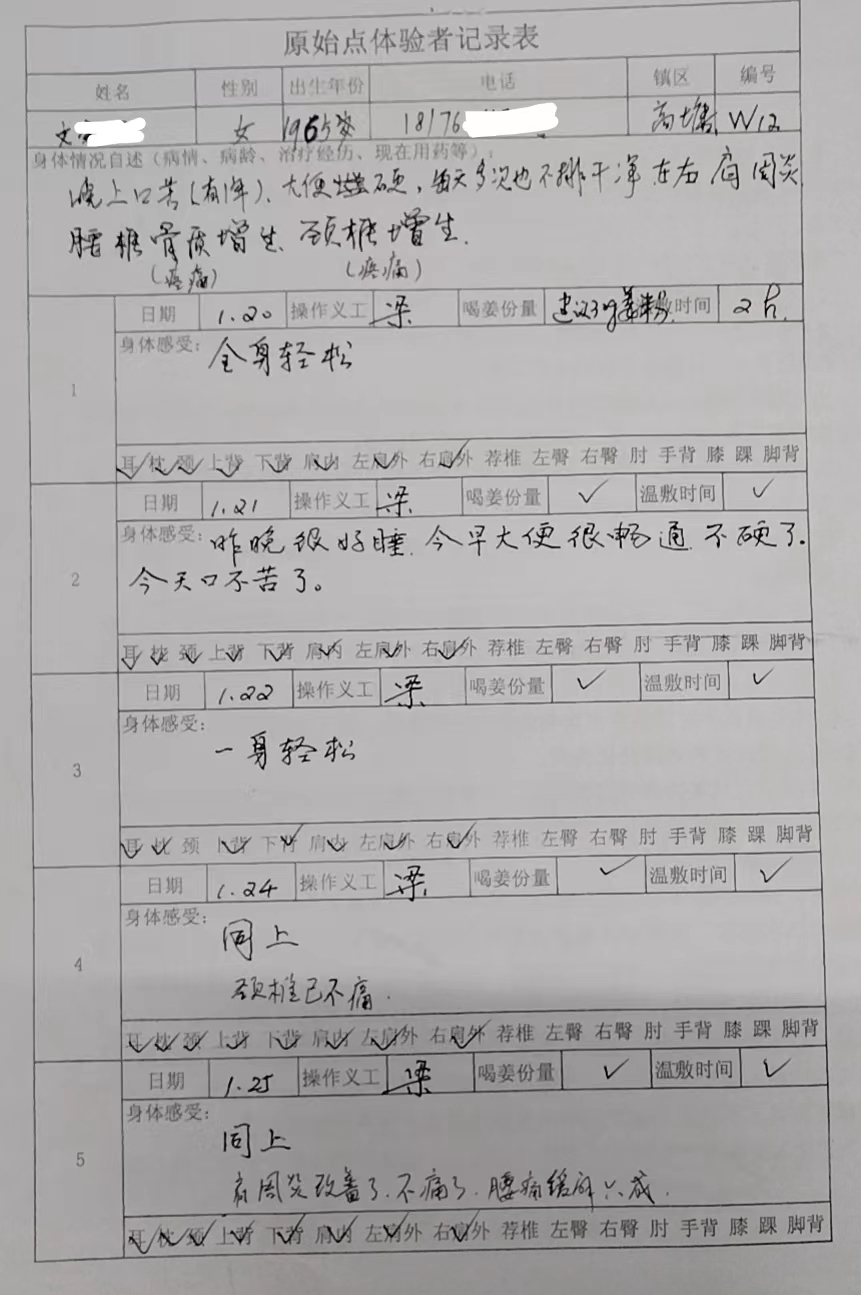 原始点体验者记录表
姓名 性别 出生年份 电话 镇区 编号
文 女 1965 1876 高塘 W12
身体情况自述（病情、病龄、治疗经历、现在用药等）：
晚上口苦(有1年)、大便 硬，每天多次也不排干净 左右肩周炎
腰椎骨质增生、颈椎增生.
(疼痛) (疼痛)
1 日期 1.20 操作义工 梁 喝姜份量 建议3g姜粉 敷时间 2h.
身体感受：全身轻松
耳 枕 颈 上背 下背 肩内 左肩外 右肩外 荐椎 左臀 右臀 肘 手背 膝 踝 脚背
2 日期 1.21 操作义工 梁 喝姜份量 ✓ 温敷时间 ✓
身体感受：昨晚很好睡.今早大便很畅通.不硬了.
今天口不苦了。
耳 枕 颈 上背 下背 肩内 左肩外 右肩外 荐椎 左臀 右臀 肘 手背 膝 踝 脚背
3 日期 1.22 操作义工 梁 喝姜份量 ✓ 温敷时间 ✓
身体感受：
一身轻松
耳 枕 颈 上背 下背 肩内 左肩外 右肩外 荐椎 左臀 右臀 肘 手背 膝 踝 脚背
4 日期 1.24 操作义工 梁 喝姜份量 ✓ 温敷时间 ✓
身体感受：
同上
颈椎已不痛.
耳 枕 颈 上背 下背 肩内 左肩外 右肩外 荐椎 左臀 右臀 肘 手背 膝 踝 脚背
5 日期 1.25 操作义工 梁 喝姜份量 ✓ 温敷时间 ✓
身体感受：
同上
肩周炎改善了.不痛了.腰痛缓解六成.
耳 枕 颈 上背 下背 肩内 左肩外 右肩外 荐椎 左臀 右臀 肘 手背 膝 踝 脚背